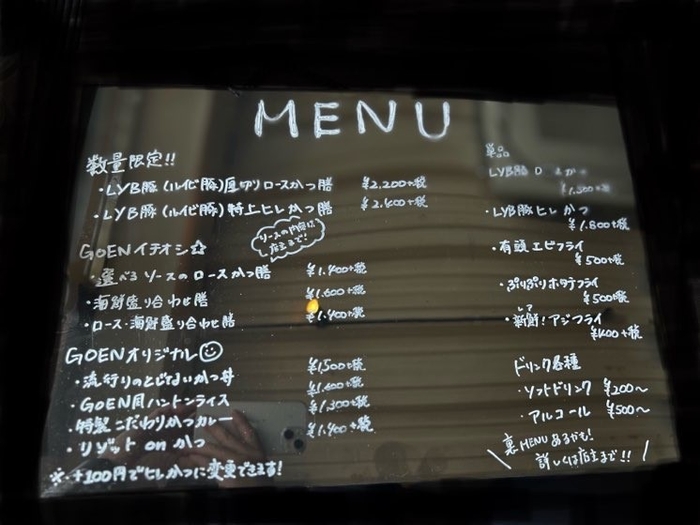 MENU
数量限定!!
・LYB豚(ルイビ豚)厚切りロースかつ膳 ¥2,200+税
・LYB豚(ルイビ豚)特上ヒレかつ膳 ¥2,400+税
ソースの内容は
店主まで!
GOENイチオシ☆
・選べるソースのロースかつ膳 ¥1,400+税
・海鮮盛り合わせ膳 ¥1,600+税
・ロース・海鮮盛り合わせ膳 ¥1,400+税
GOENオリジナル☺
・流行りのとじないかつ丼 ¥1,500+税
・GOEN風ハントンライス ¥1,400+税
・特製こだわりかつカレー ¥1,300+税
・リゾット on かつ ¥1,400+税
※・+100円でヒレかつに変更できます!
単品
LYB豚ロ
¥1,500+税
・LYB豚ヒレかつ
¥1,800+税
・有頭エビフライ
¥500+税
・ぷりぷりホタテフライ
¥500+税
・新鮮!アジフライ
¥400+税
ドリンク各種
・ソフトドリンク ¥200〜
・アルコール ¥500〜
\ 裏MENUあるかも!
詳しくは店主まで!! /